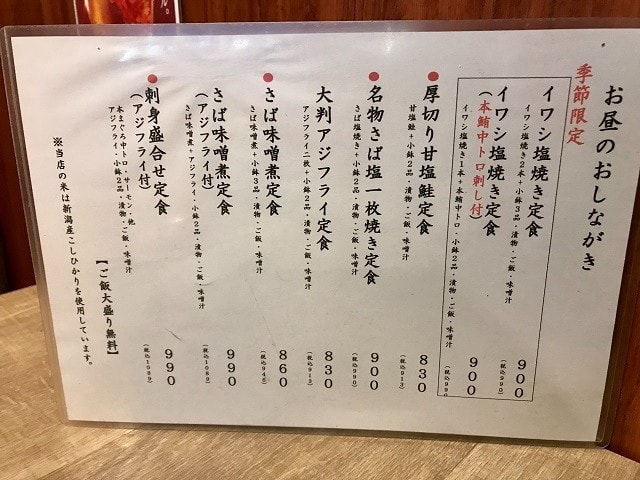 お昼のおしながき
季節限定
イワシ塩焼き定食 900
イワシ塩焼き2本+小鉢2品・漬物・ご飯・味噌汁 (税込990)
イワシ塩焼き定食 900
(本鮪中トロ刺し付)
イワシ塩焼き1本+本鮪中トロ・小鉢2品・漬物・ご飯・味噌汁 (税込990
●厚切り甘塩鮭定食 830
甘塩鮭+小鉢2品・漬物・ご飯・味噌汁 (税込913)
●名物さば塩一枚焼き定食 900
さば塩焼き+小鉢2品・漬物・ご飯・味噌汁 (税込990)
大判アジフライ定食 830
アジフライ二枚+小鉢2品・漬物・ご飯・味噌汁 (税込913)
●さば味噌煮定食 860
さば味噌煮+小鉢3品・漬物・ご飯・味噌汁 (税込946)
さば味噌煮定食 990
(アジフライ付)
さば味噌煮+アジフライ・小鉢2品・漬物・ご飯・味噌汁 (税込1089)
●刺身盛合せ定食 990
(アジフライ付)
本まぐろ中トロ・サーモン・他
アジフライ・小鉢2品・漬物・ご飯・味噌汁 (税込1089)
【ご飯大盛り無料】
※当店の米は新潟産こしひかりを使用しています。